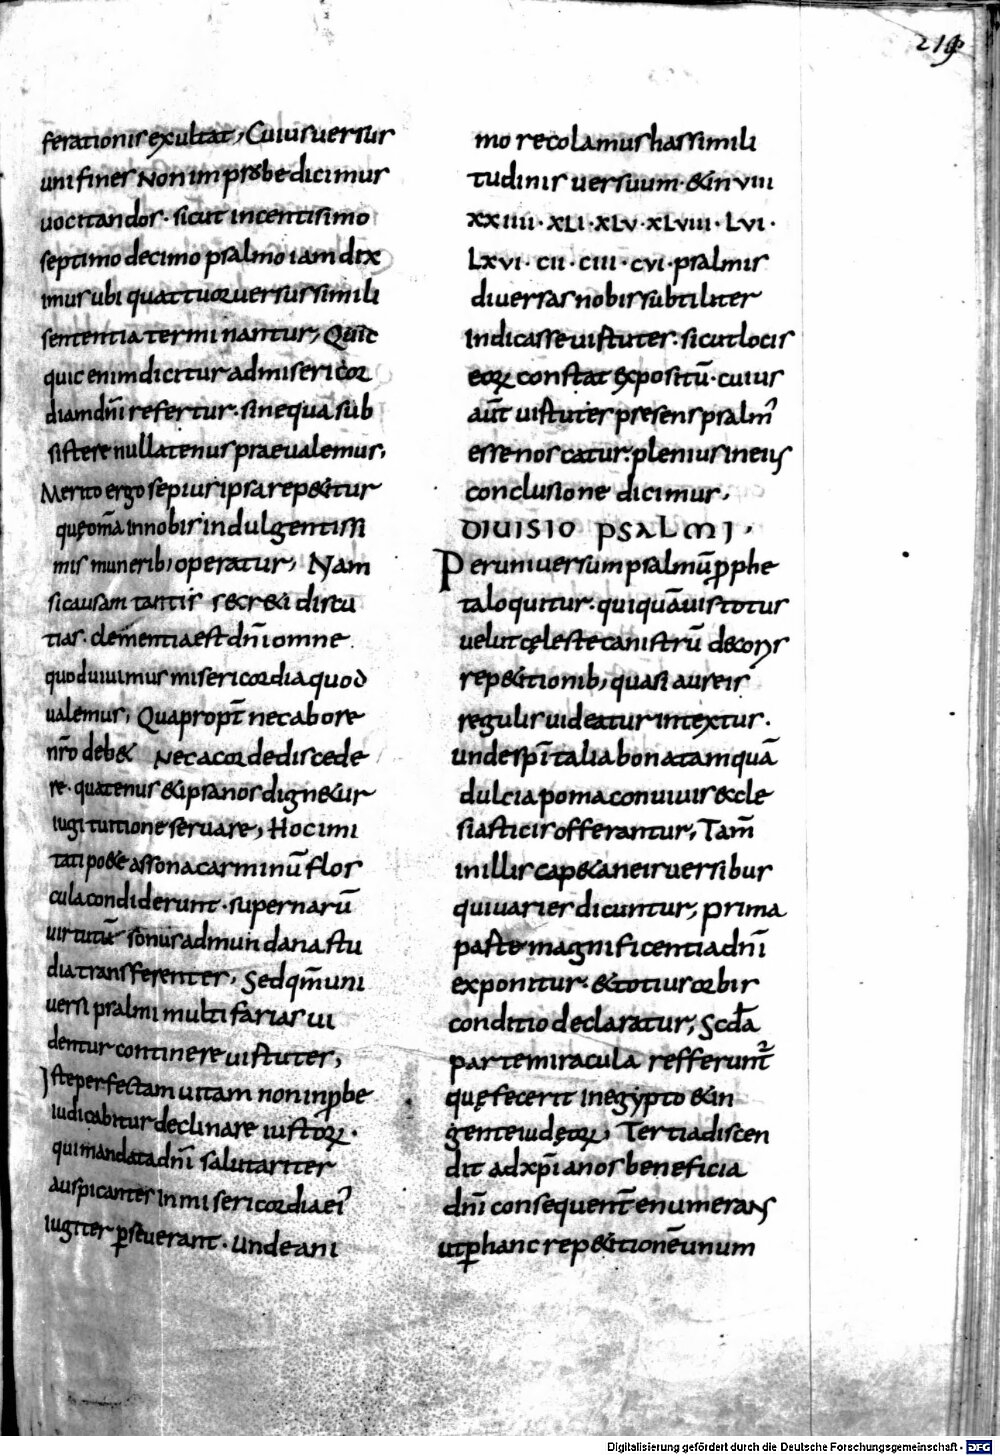 219
ferationis exultat, Cuius uersus
uni fines Non improbe dicimus
uocitandos · sicut in centisimo
septimo decimo psalmo iam dix
imus ubi quattuor uersus simili
sententia terminantur, Quic
quic enim dicitur ad misericor
diam dn̄i refertur · sine qua sub
sistere nullatenus praeualemus,
Merito ergo sepius ipsa rep&itur
quę om̄a in nobis indulgentissi
mis munerib; operatur, Nam
si causam tantis secr&i discu
tias · clementia est dn̄i omne
quod uiuimus misericordia quod
ualemus, Quapropt̄ nec ab ore
nr̄o deb& Nec a corde discede
re · quatenus & ipsa nos dign&ur
iugi tuitione seruare, Hoc imi
tati po&ę assona carminū flos
cula condiderunt · supernarū
uirtutū sonus ad mundana stu
dia transferentes, Sed qm̄ uni
uersi psalmi multifarias ui
dentur continere uirtutes,
Iste perfectam uitam non inꝓbe
iudicabitur declinare iustoꝝ ·
qui mandata dn̄i salutariter
auspicantes in misericordia ei'
iugiter ꝑseuerant · unde ani
mo recolamus has simili
tudinis uersuum · & in VIII
XXIIII · XLI · XLV · XLVIII · LVI ·
LXVI · CII · CIII · CVI · psalmis
diuersas nobis subtiliter
Indicasse uirtutes · sicut locis
eoꝝ constat expositū · cuius
aūt uirtutes presens psalm'
esse noscatur · plenius in eius
conclusione dicimus,
DIUISIO PSALMI ·
Per uniuersum psalmū ꝓphe
ta loquitur · qui quāuis totus
uelut cęleste canistrū decoris
rep&itionib; quasi aureis
regulis uideatur intextus ·
unde spītalia bona tamquā
dulcia poma conuiuis eccle
siasticis offerantur, Tam̄
in illis cap& aneis uersibus
qui uarie dicuntur, prima
parte magnificentia dn̄i
exponitur · & totius orbis
conditio declaratur, Scd̄a
parte miracula refferunt̄
quę fecerit in egypto & in
gente iudęoꝝ, Tertia discen
dit ad xp̄ianos beneficia
dn̄i consequent̄ enumerans
ut ꝑ hanc rep&itionē unum
Digitalisierung gefördert durch die Deutsche Forschungsgemeinschaft - DFG